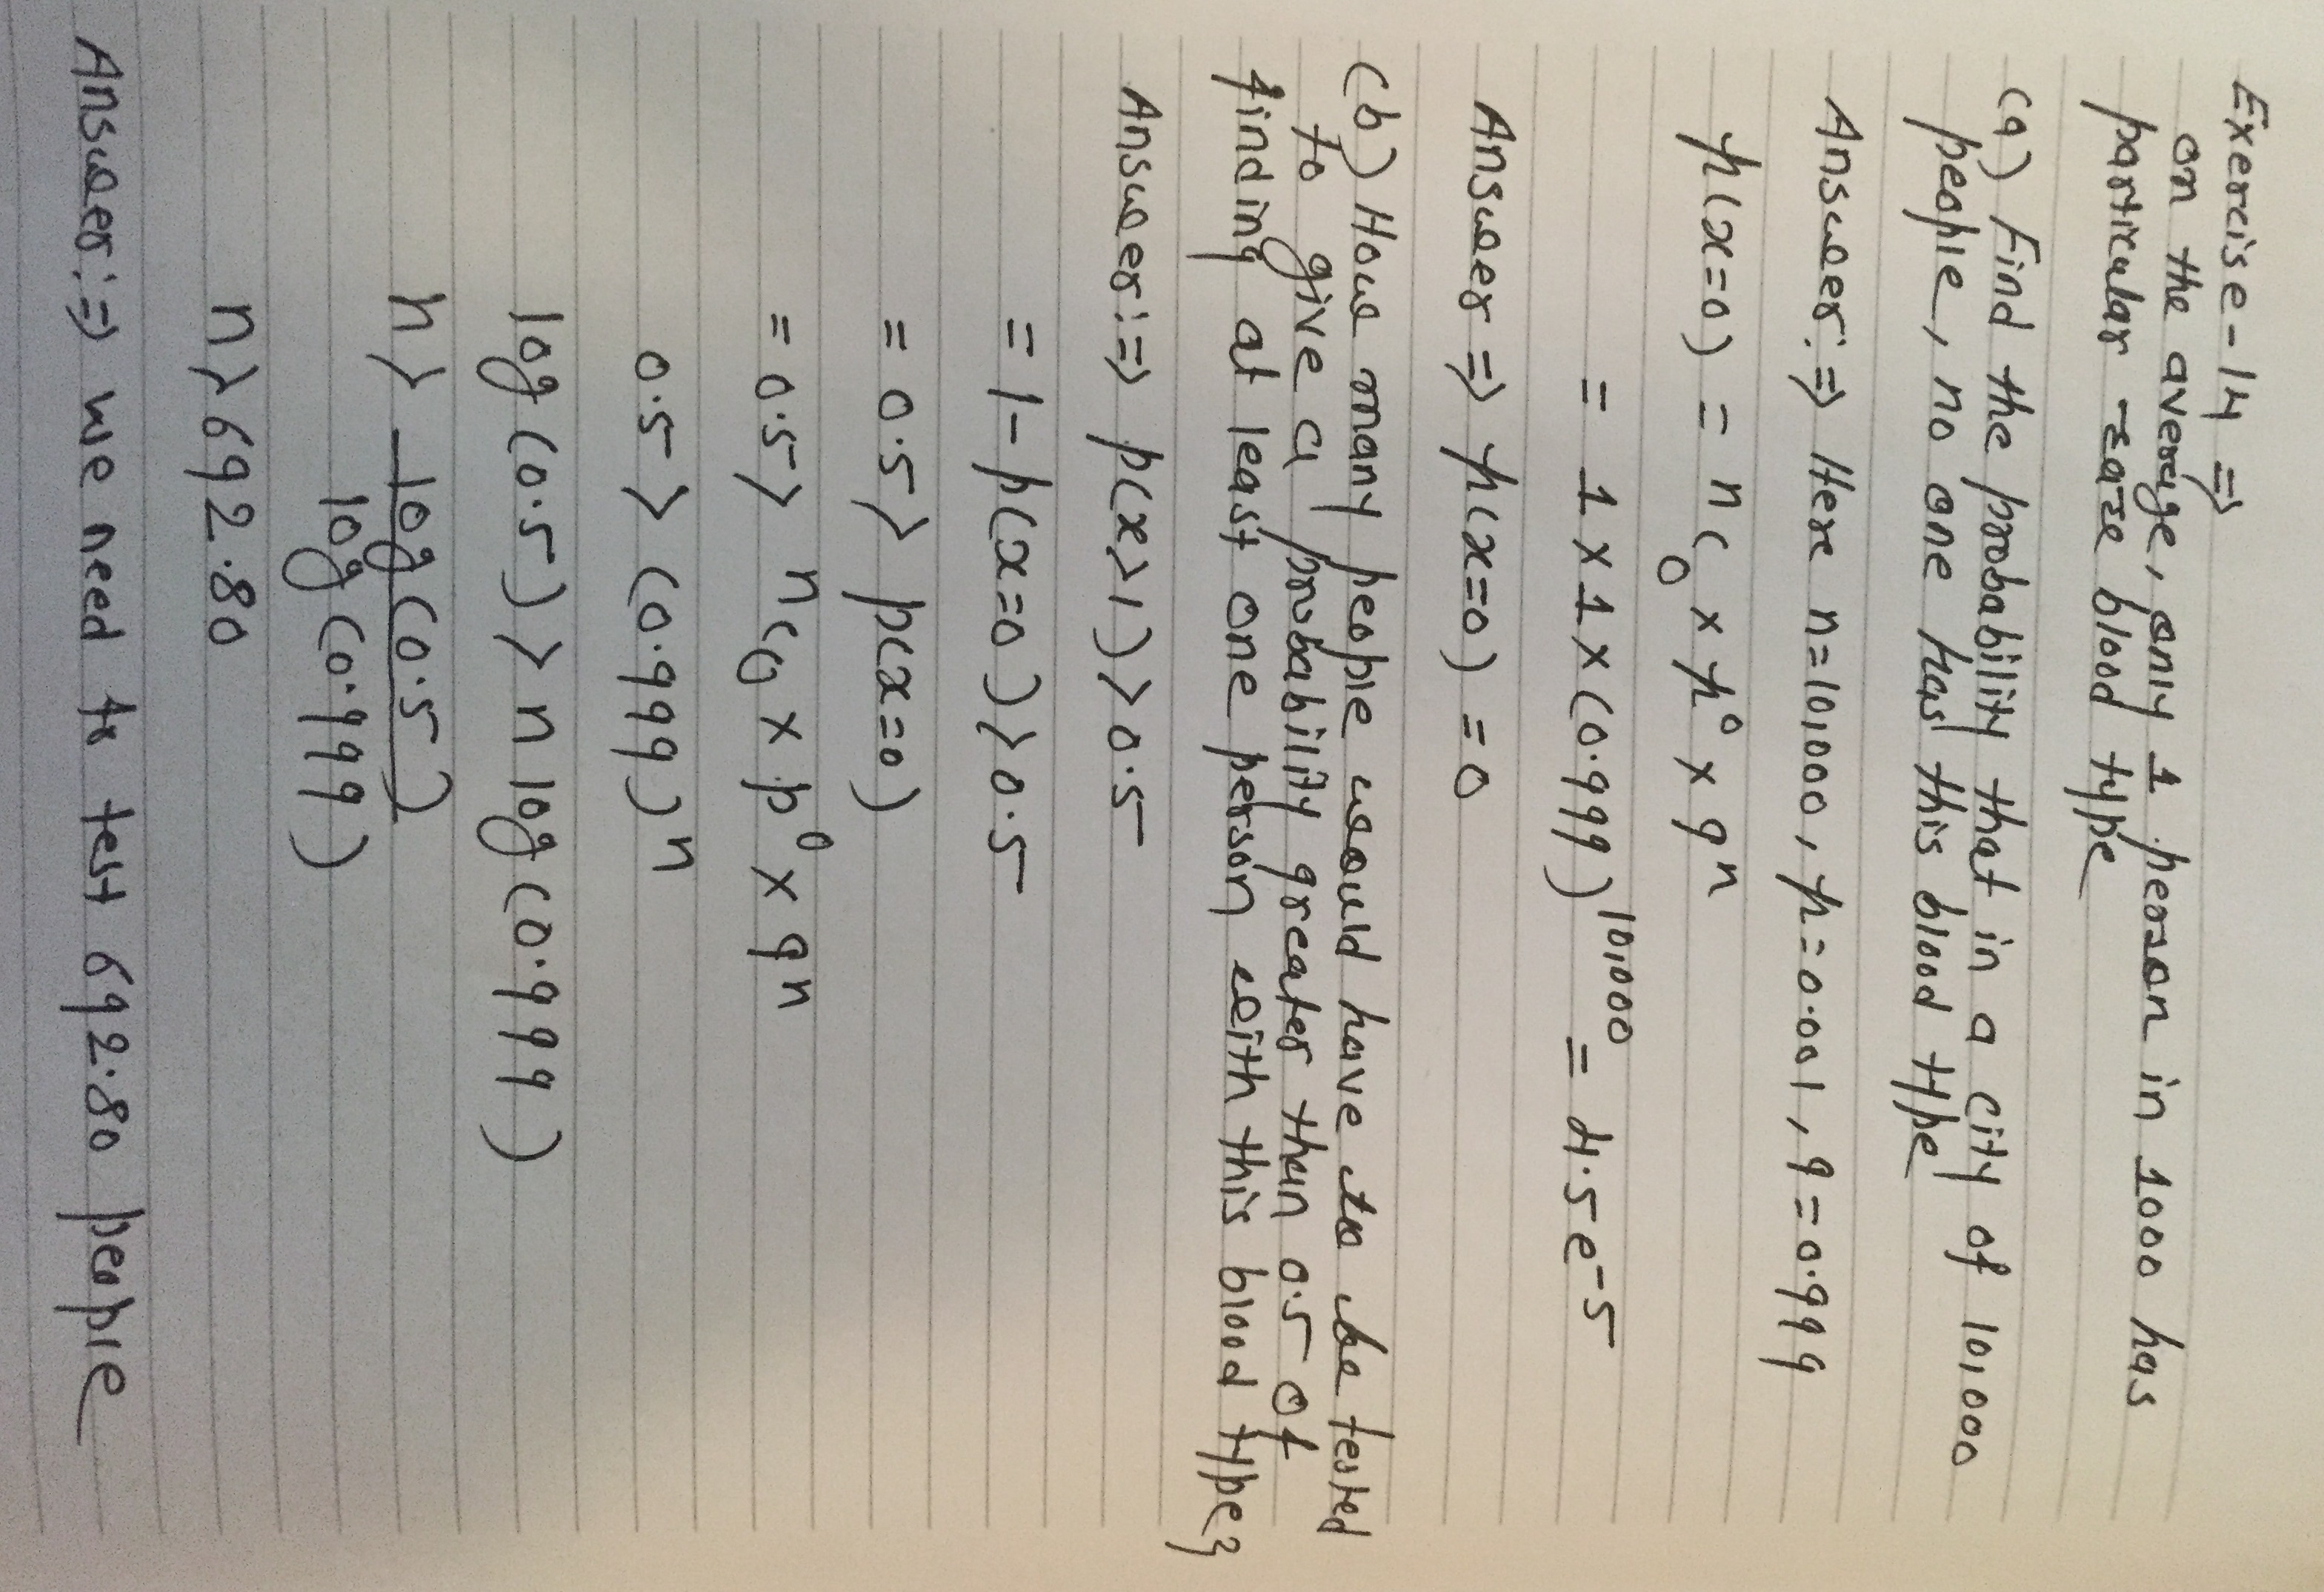 Exercise-14 ⇒
on the average, only 1 person in 1000 has
particular rare blood type
(a) Find the probability that in a city of 10,000
people, no one has this blood type
Answer:⇒ Here n=10,000, p=0.001, q=0.999
p(x=0) = nC₀ × p⁰ × qⁿ
= 1 × 1 × (0.999)¹⁰,⁰⁰⁰ = 4.5e⁻⁵
Answer ⇒ p(x=0) = 0
(b) How many people would have to be tested
to give a probability greater than 0.5 of
finding at least one person with this blood type?
Answer:⇒ p(x>1) > 0.5
= 1-p(x=0) > 0.5
= 0.5 > p(x=0)
= 0.5 > nC₀ × p⁰ × qⁿ
0.5 > (0.999)ⁿ
log(0.5) > n log(0.999)
n > log(0.5)
log(0.999)
n > 692.80
Answer:⇒ we need to test 692.80 people